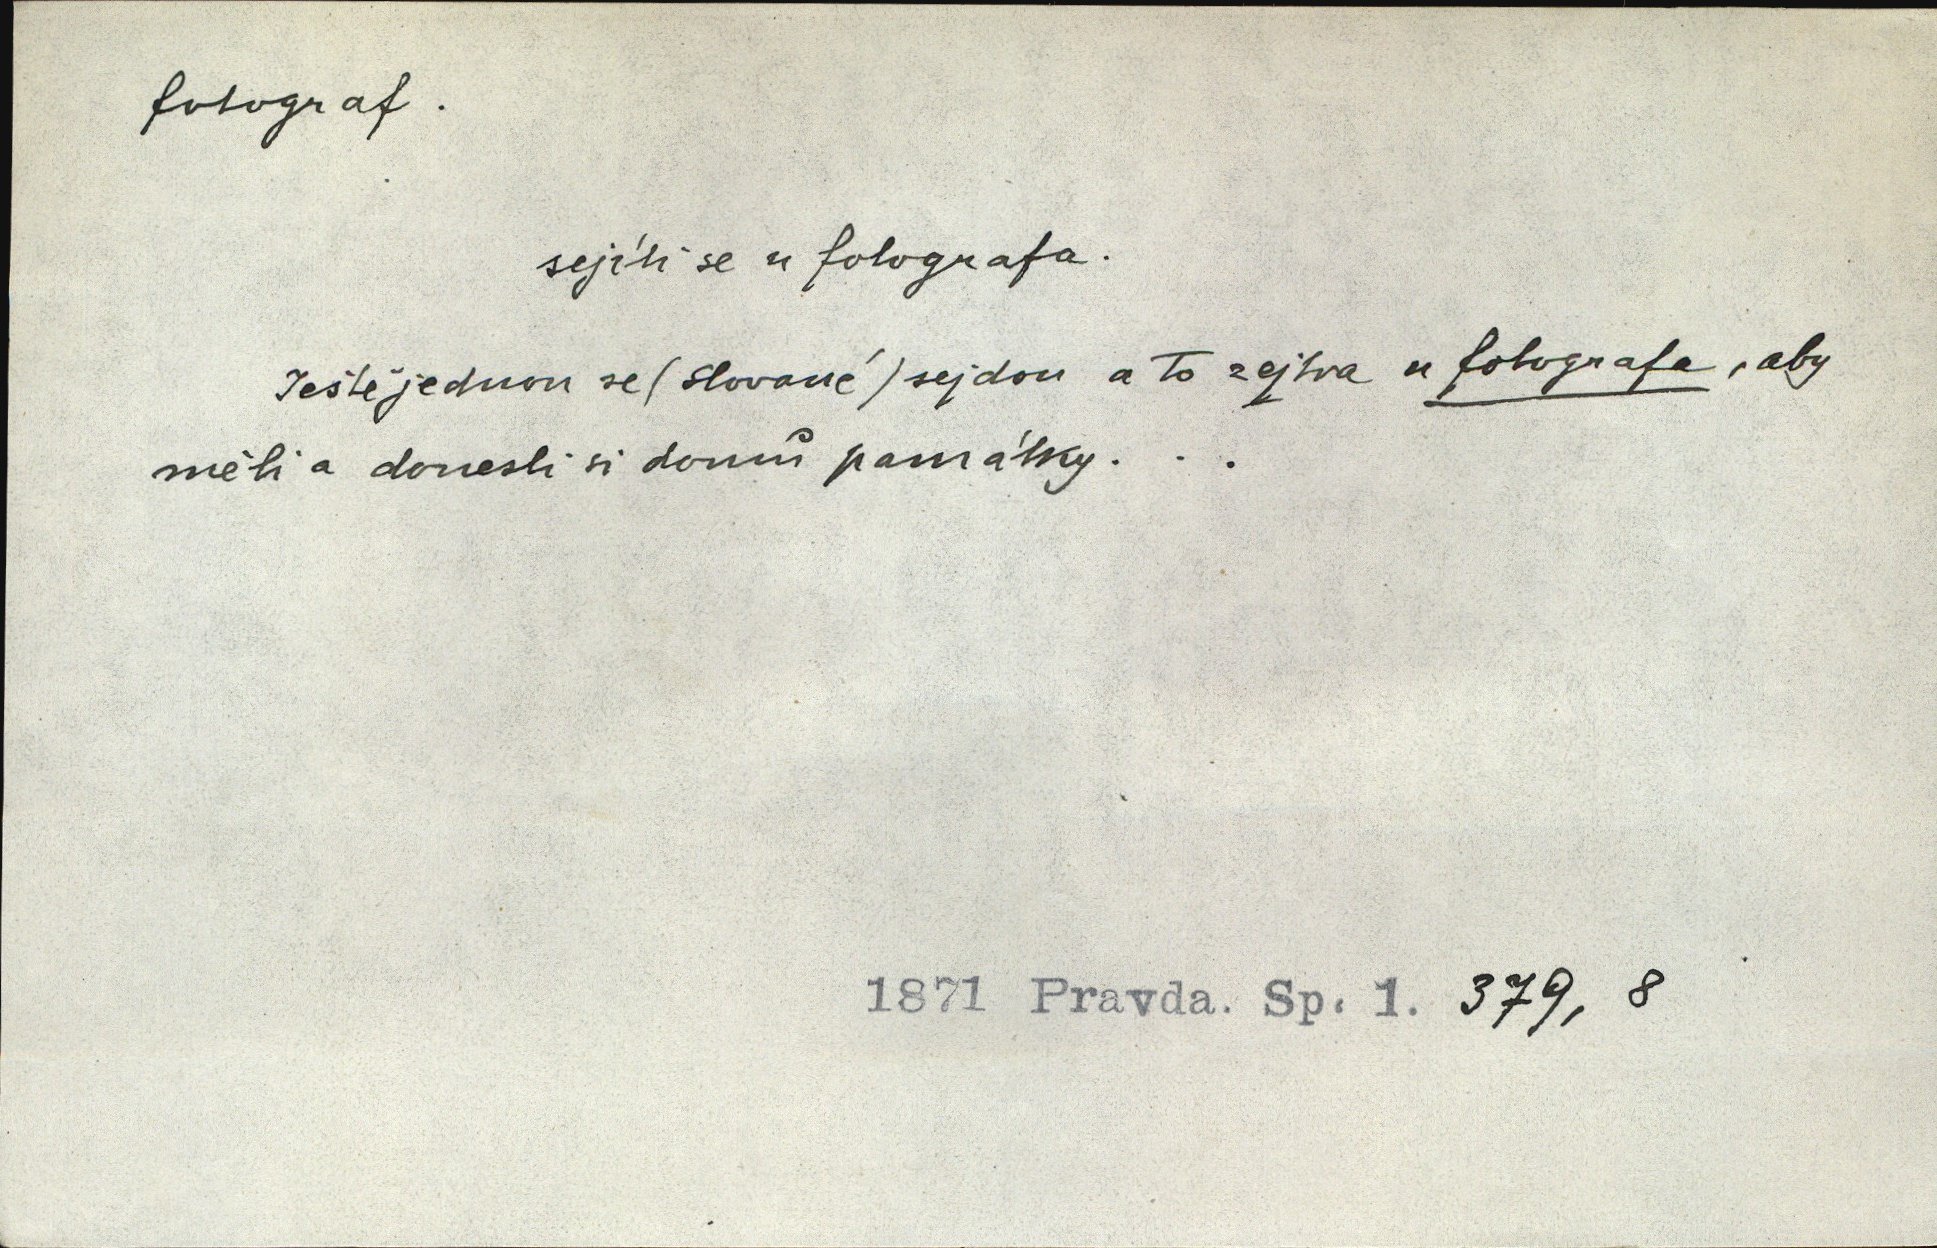 fotograf.
sejíti se u fotografa.
Ještě jednou se (Slované) sejdou a to zejtra u fotografa, aby
měli a donesli si domů památky. . .
1871 Pravda. Sp. 1. 379, 8